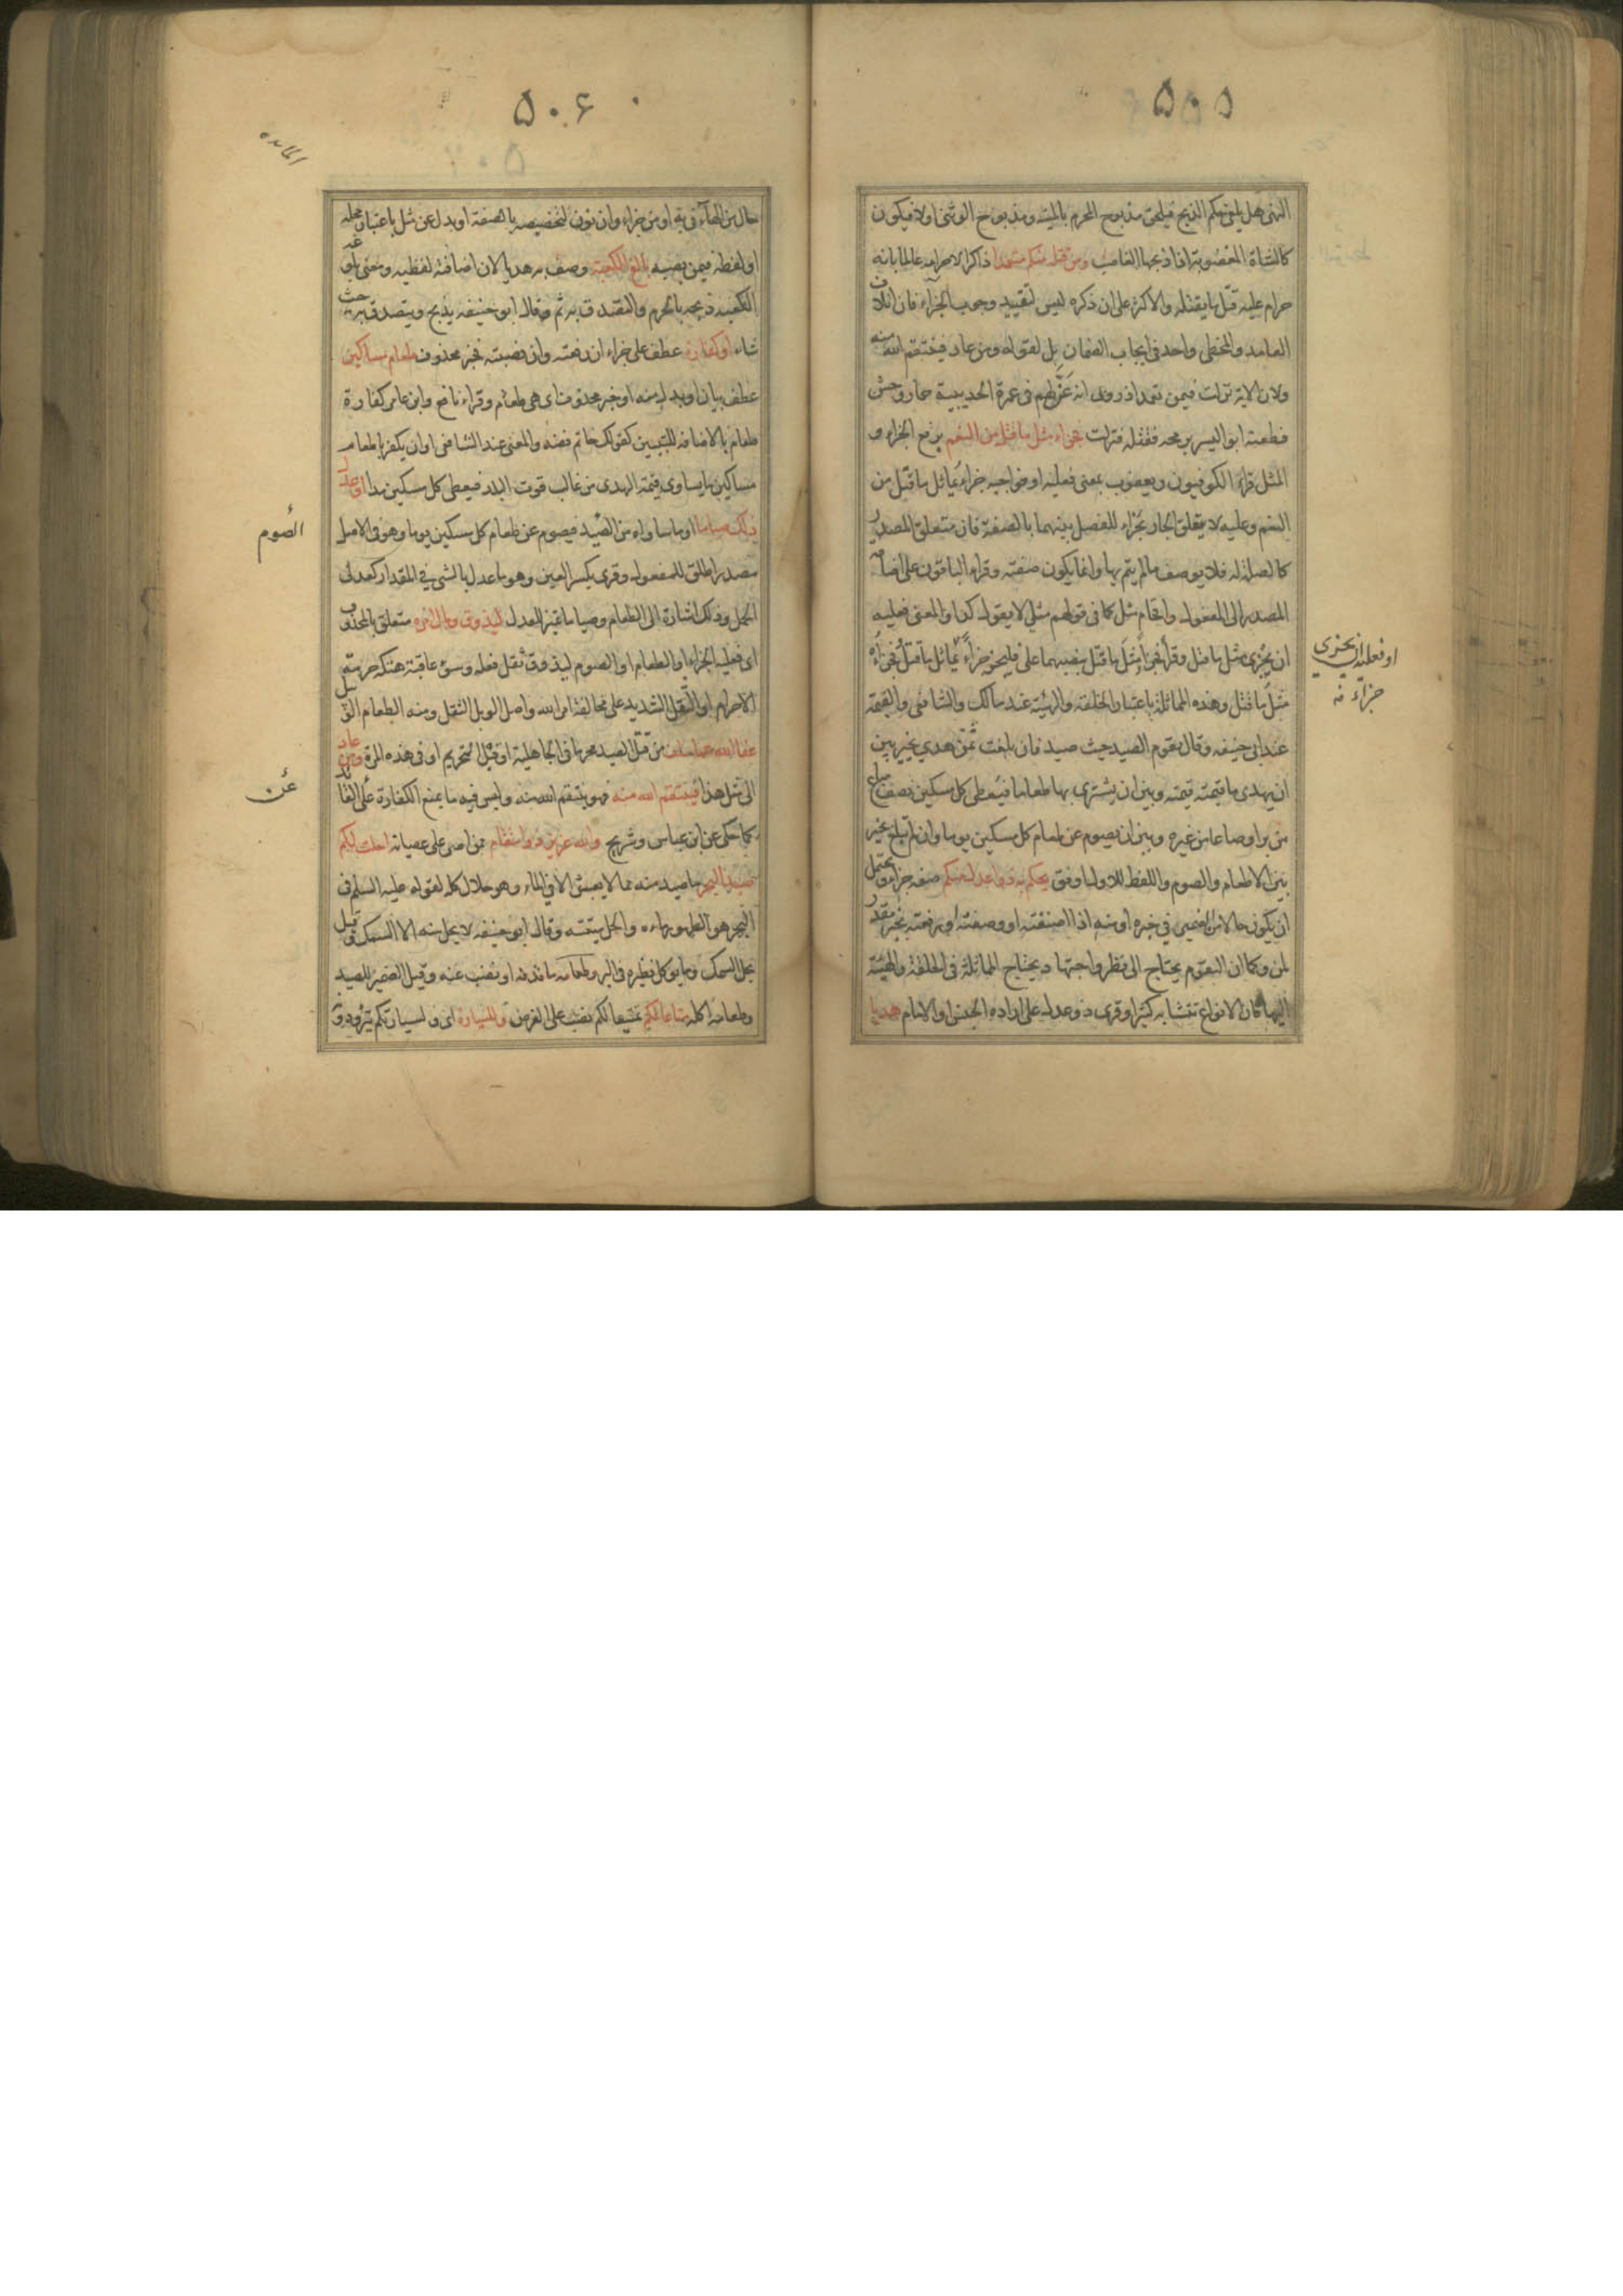 ۵۰۵
النهى هل يلغى حكم الذبح فيلحق مذبوح المحرم بالميتة ومذبوح الوثنى اولا فيكون
كالشاة المغصوبة اذا ذبحها الغاصب ومن قتله منكم متعمدا ذاكرا لاحرامه عالما بانه
حرام عليه قتل ما يقتله والاكثر على ان ذكره ليس لتقييد وجوب الجزاء فان اتلاف
العامد والمخطى واحد فى ايجاب الضمان بل لقوله ومن عاد فينتقم الله منه
ولان الاية نزلت فيمن تعمد اذ روى انه عن لهم فى عمرة الحديبية حمار وحش
فطعنه ابو اليسر برمحه فقتله فنزلت فجزاء مثل ما قتل من النعم برفع الجزاء و
المثل قراءة الكوفيون ويعقوب بمعنى فعليه او فواجبه جزاء يماثل ما قتل من
النعم وعليه لا يتعلق الجار بجزاء للفصل بينهما بالصفة فان متعلق المصدر
كالصلة له فلا يوصف ما لم يتم بها وانما يكون صفته وقراء الباقون على اضافة
المصدر الى المفعول واقحام مثل كما فى قولهم مثلى لا يقول كذا والمعنى فعليه
ان يجزى مثل ما قتل وقرئ فجزاء مثل ما قتل بنصبهما على فليجز جزاء يماثل ما قتل وفجزاؤه
مثل ما قتل وهذه المماثلة باعتبار الخلقة والهيئة عند مالك والشافعى والقيمة
عند ابى حنيفه وقال يقوم الصيد حيث صيد فان بلغت ثمن هدى يخير بين
ان يهدى ما قيمته قيمته وبين ان يشترى بها طعاما فيعطى كل مسكين نصف صاع
من بر او صاعا من غيره وبين ان يصوم عن طعام كل مسكين يوما وان لم تبلغ يخير
بين الاطعام والصوم واللفظ للاول اوفق يحكم به ذوا عدل منكم صفة جزاء ويحتمل
ان يكون حالا من الضمير فى خبره او منه اذا اضفته او وصفته او رفعته بخبر مقدر
لمن وكما ان التقويم يحتاج الى نظر واجتهاد يحتاج المماثلة فى الخلقة والهيئة
اليها فان الانواع تتشابه كثيرا وقرى ذو عدل على ارادة الجنس او الامام هديا
او فعليه ان يجزى
جزاء منه
۵۰۶
المائده
حال من الهاء فى به او من جزاء وان نون لتخصيصه بالصفة او بدل عن مثل باعتبار محله
او لفظه فيمن نصبه بالغ الكعبة وصف به هديا لان اضافته لفظيه ومعنى بلوغه
الكعبه ذبحه بالحرم والتصدق به ثم وقال ابو حنيفه يذبح ويتصدق به حيث
شاء او كفارة عطف على جزاء ان رفعته وان نصبته فخبر محذوف طعام مساكين
عطف بيان او بدل منه او خبر محذوف اى هى طعام وقراء نافع وابن عامر كفارة
طعام بالاضافه للتبيين كقولك خاتم فضه والمعنى عند الشافعى او ان يكفر باطعام
مساكين ما يساوى قيمة الهدى من غالب قوت البلد فيعطى كل مسكين مدا او عدل
ذلك صياما او ما ساواه من الصيد فيصوم عن طعام كل مسكين يوما وهو فى الاصل
مصدر اطلق للمفعول وقرى بكسر العين وهو ما عدل بالشى فى المقدار كعدلى
الحمل وذلك اشارة الى الطعام وصياما تمييز للعدل ليذوق وبال امره متعلق بالمحذوف
اى فعليه الجزاء او الطعام او الصوم ليذوق ثقل فعله وسوء عاقبة هتكه حرمة
الاحرام او الثقل الشديد على مخالفة امر الله واصل الوبل الثقل ومنه الطعام الوبيل
عفا الله عما سلف من قتل الصيد محرما فى الجاهلية او قبل التحريم او فى هذه المرة ومن عاد
الى مثل هذا فينتقم الله منه فهو ينتقم الله منه وليس فيه ما يمنع الكفارة على العائد
كما حكى عن ابن عباس وشريح والله عزيز ذو انتقام ممن اصر على عصيانه احل لكم
صيد البحر ما صيد منه مما لا يعيش الا فى الماء وهو حلال كله لقوله عليه السلم فى
البحر هو الطهور ماءه والحل ميتته وقال ابو حنيفه لا يحل منه الا السمك وقيل
يحل السمك وما يوكل نظيره فى البر وطعامه ما قذفه او نضب عنه وقيل الضمير للصيد
وطعامه اكله متاعا لكم تمتيعا لكم نصب على الغرض وللسيارة اى ولسيارتكم يتزودونه
الصوم
عن